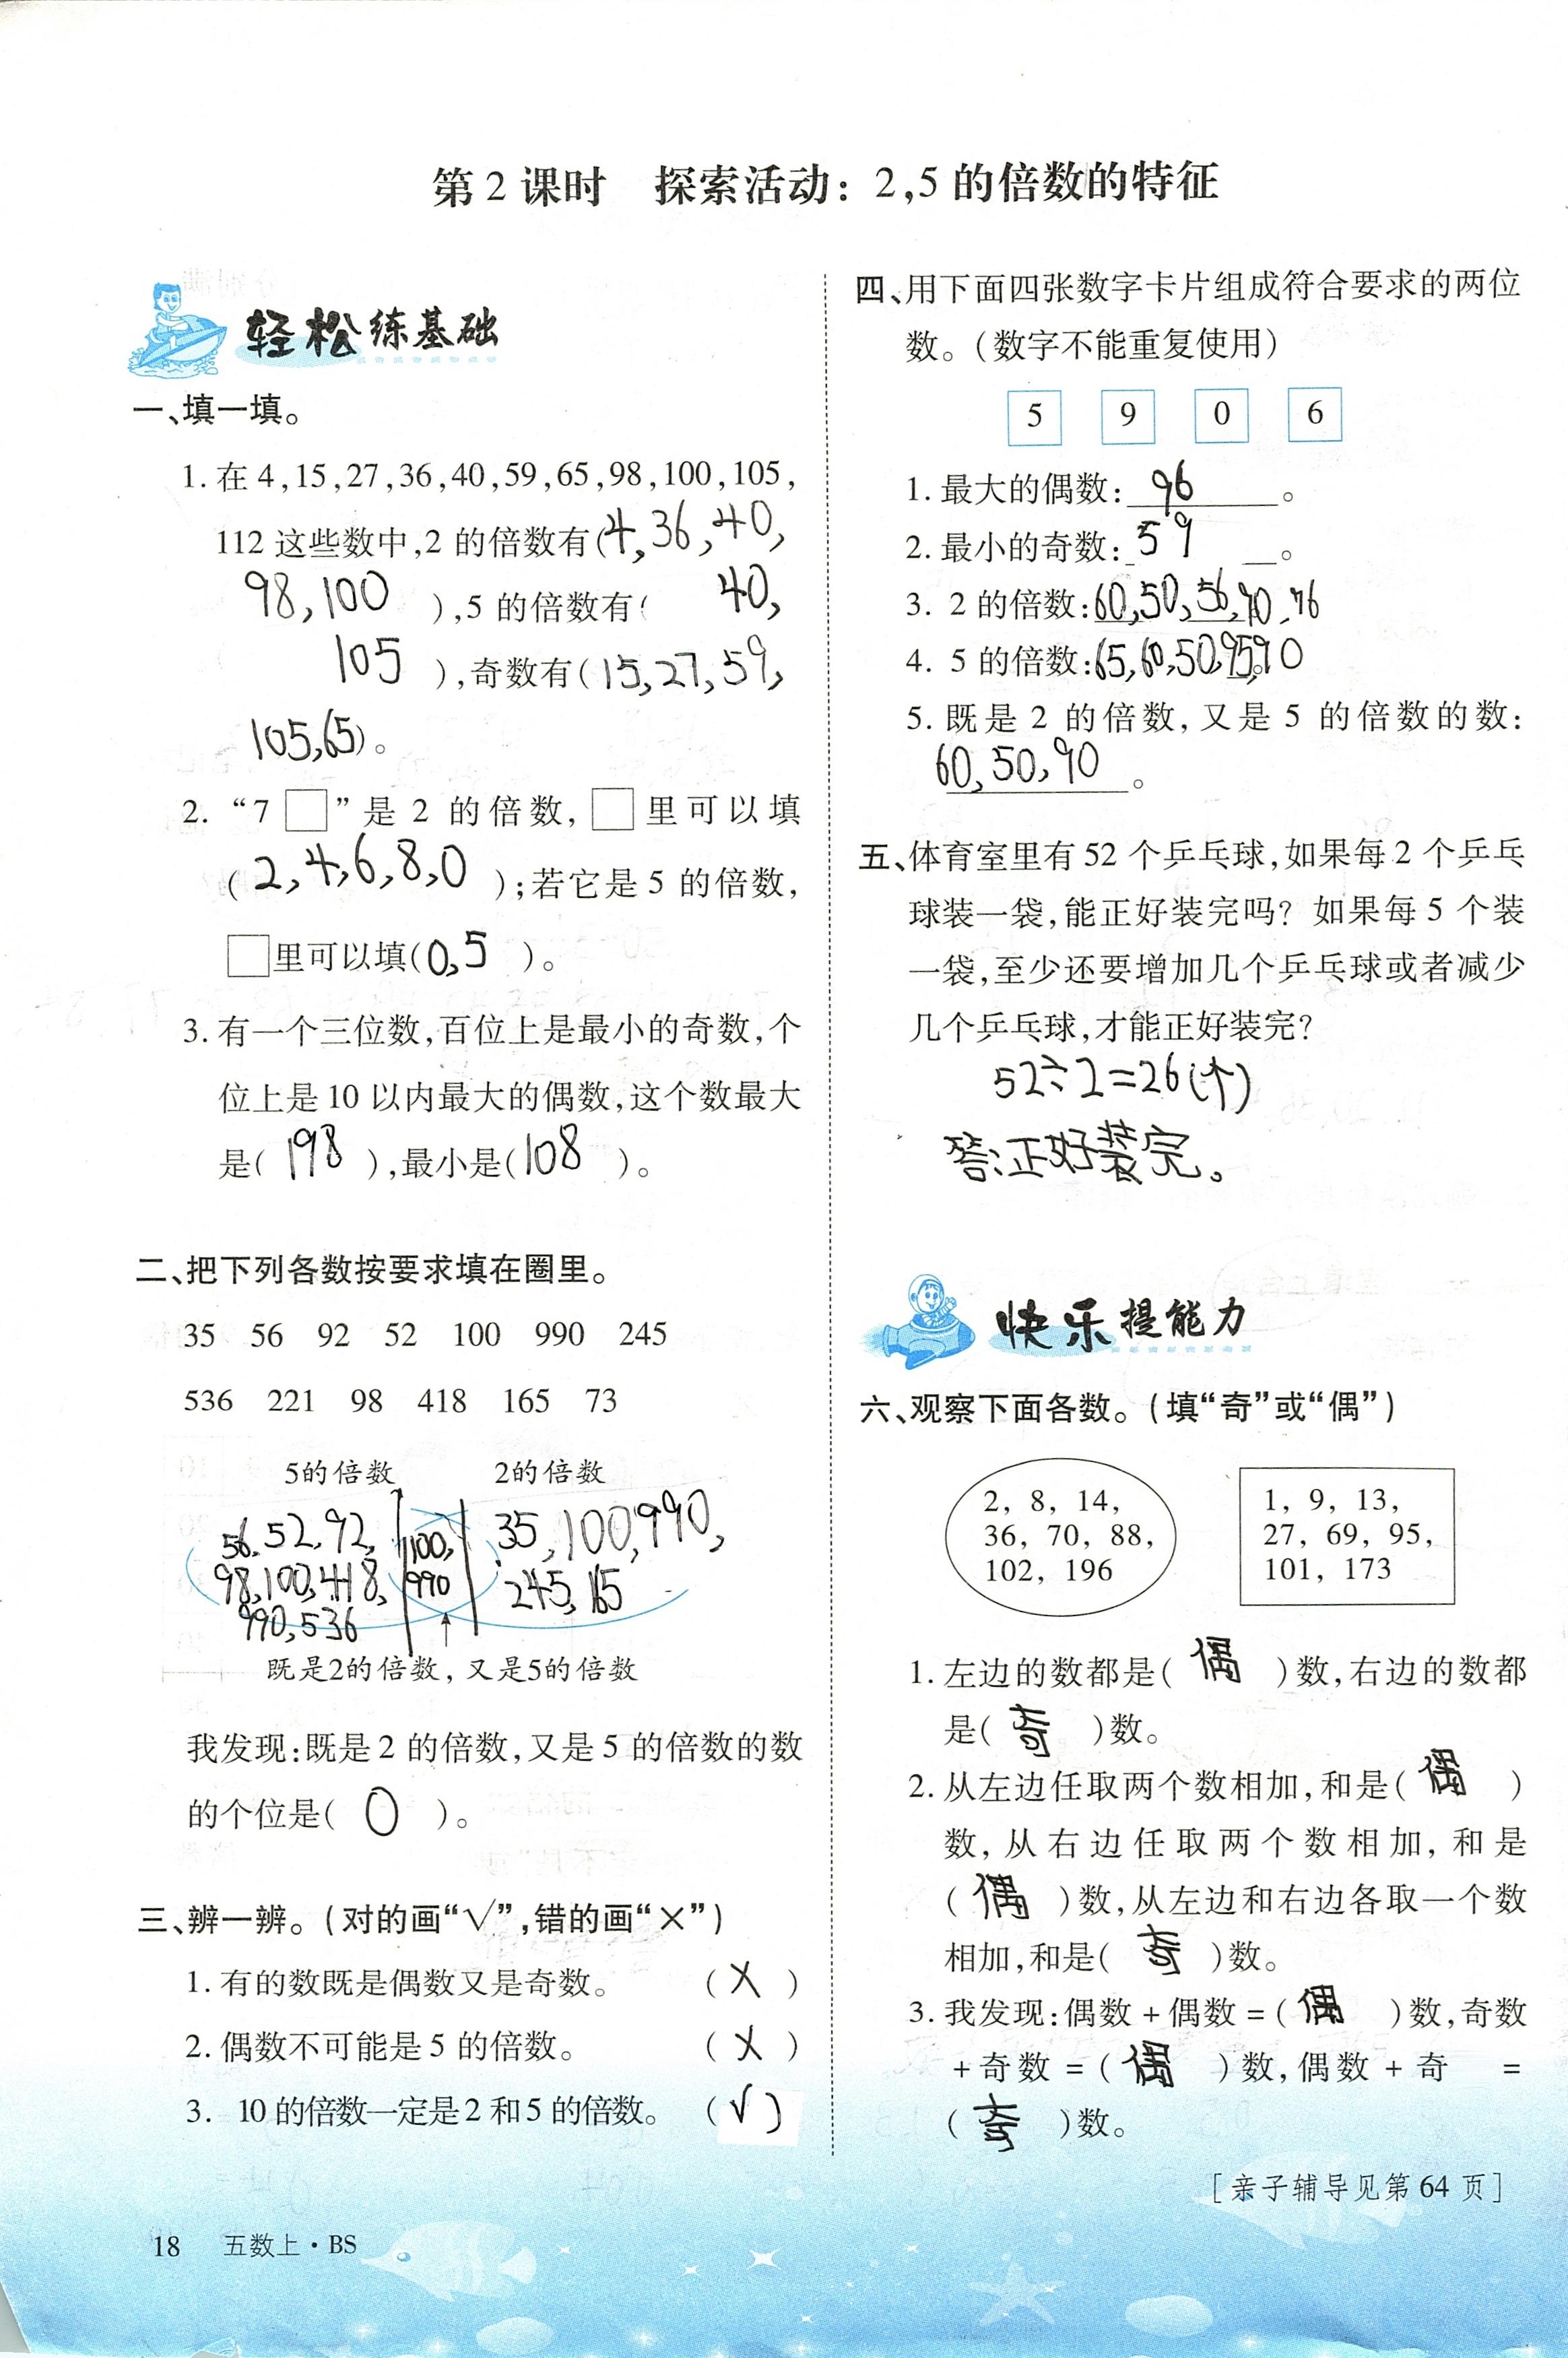 第2课时 探索活动：2,5的倍数的特征
轻松练基础
一、填一填。
1. 在4,15,27,36,40,59,65,98,100,105,
112这些数中,2的倍数有(4,36,40,
98,100 ),5的倍数有( 40,
105 ),奇数有(15,27,59,
105,65)。
2. “7□”是2的倍数,□里可以填
(2,4,6,8,0 );若它是5的倍数,
□里可以填(0,5 )。
3. 有一个三位数,百位上是最小的奇数,个
位上是10以内最大的偶数,这个数最大
是(198 ),最小是(108 )。
二、把下列各数按要求填在圈里。
35 56 92 52 100 990 245
536 221 98 418 165 73
5的倍数 2的倍数
56,52,92, 100, 35,100,990,
98,100,418, 990 245,165
990,536
既是2的倍数，又是5的倍数
我发现:既是2的倍数,又是5的倍数的数
的个位是( 0 )。
三、辨一辨。(对的画“√”,错的画“×”)
1. 有的数既是偶数又是奇数。 (×)
2. 偶数不可能是5的倍数。 (×)
3. 10的倍数一定是2和5的倍数。 (√)
18 五数上·BS
四、用下面四张数字卡片组成符合要求的两位
数。(数字不能重复使用)
5 9 0 6
1. 最大的偶数: 96 。
2. 最小的奇数: 59 。
3. 2的倍数:60,50,56,90,96
4. 5的倍数:65,60,50,95,90
5. 既是2的倍数,又是5的倍数的数:
60,50,90 。
五、体育室里有52个乒乓球,如果每2个乒乓
球装一袋,能正好装完吗? 如果每5个装
一袋,至少还要增加几个乒乓球或者减少
几个乒乓球,才能正好装完?
52÷2=26(个)
答:正好装完。
快乐提能力
六、观察下面各数。(填“奇”或“偶”)
2, 8, 14, 1, 9, 13,
36, 70, 88, 27, 69, 95,
102, 196 101, 173
1. 左边的数都是( 偶 )数,右边的数都
是( 奇 )数。
2. 从左边任取两个数相加,和是( 偶 )
数,从右边任取两个数相加,和是
( 偶 )数,从左边和右边各取一个数
相加,和是( 奇 )数。
3. 我发现:偶数+偶数=( 偶 )数,奇数
+奇数=( 偶 )数,偶数+奇 =
( 奇 )数。
[亲子辅导见第64页]